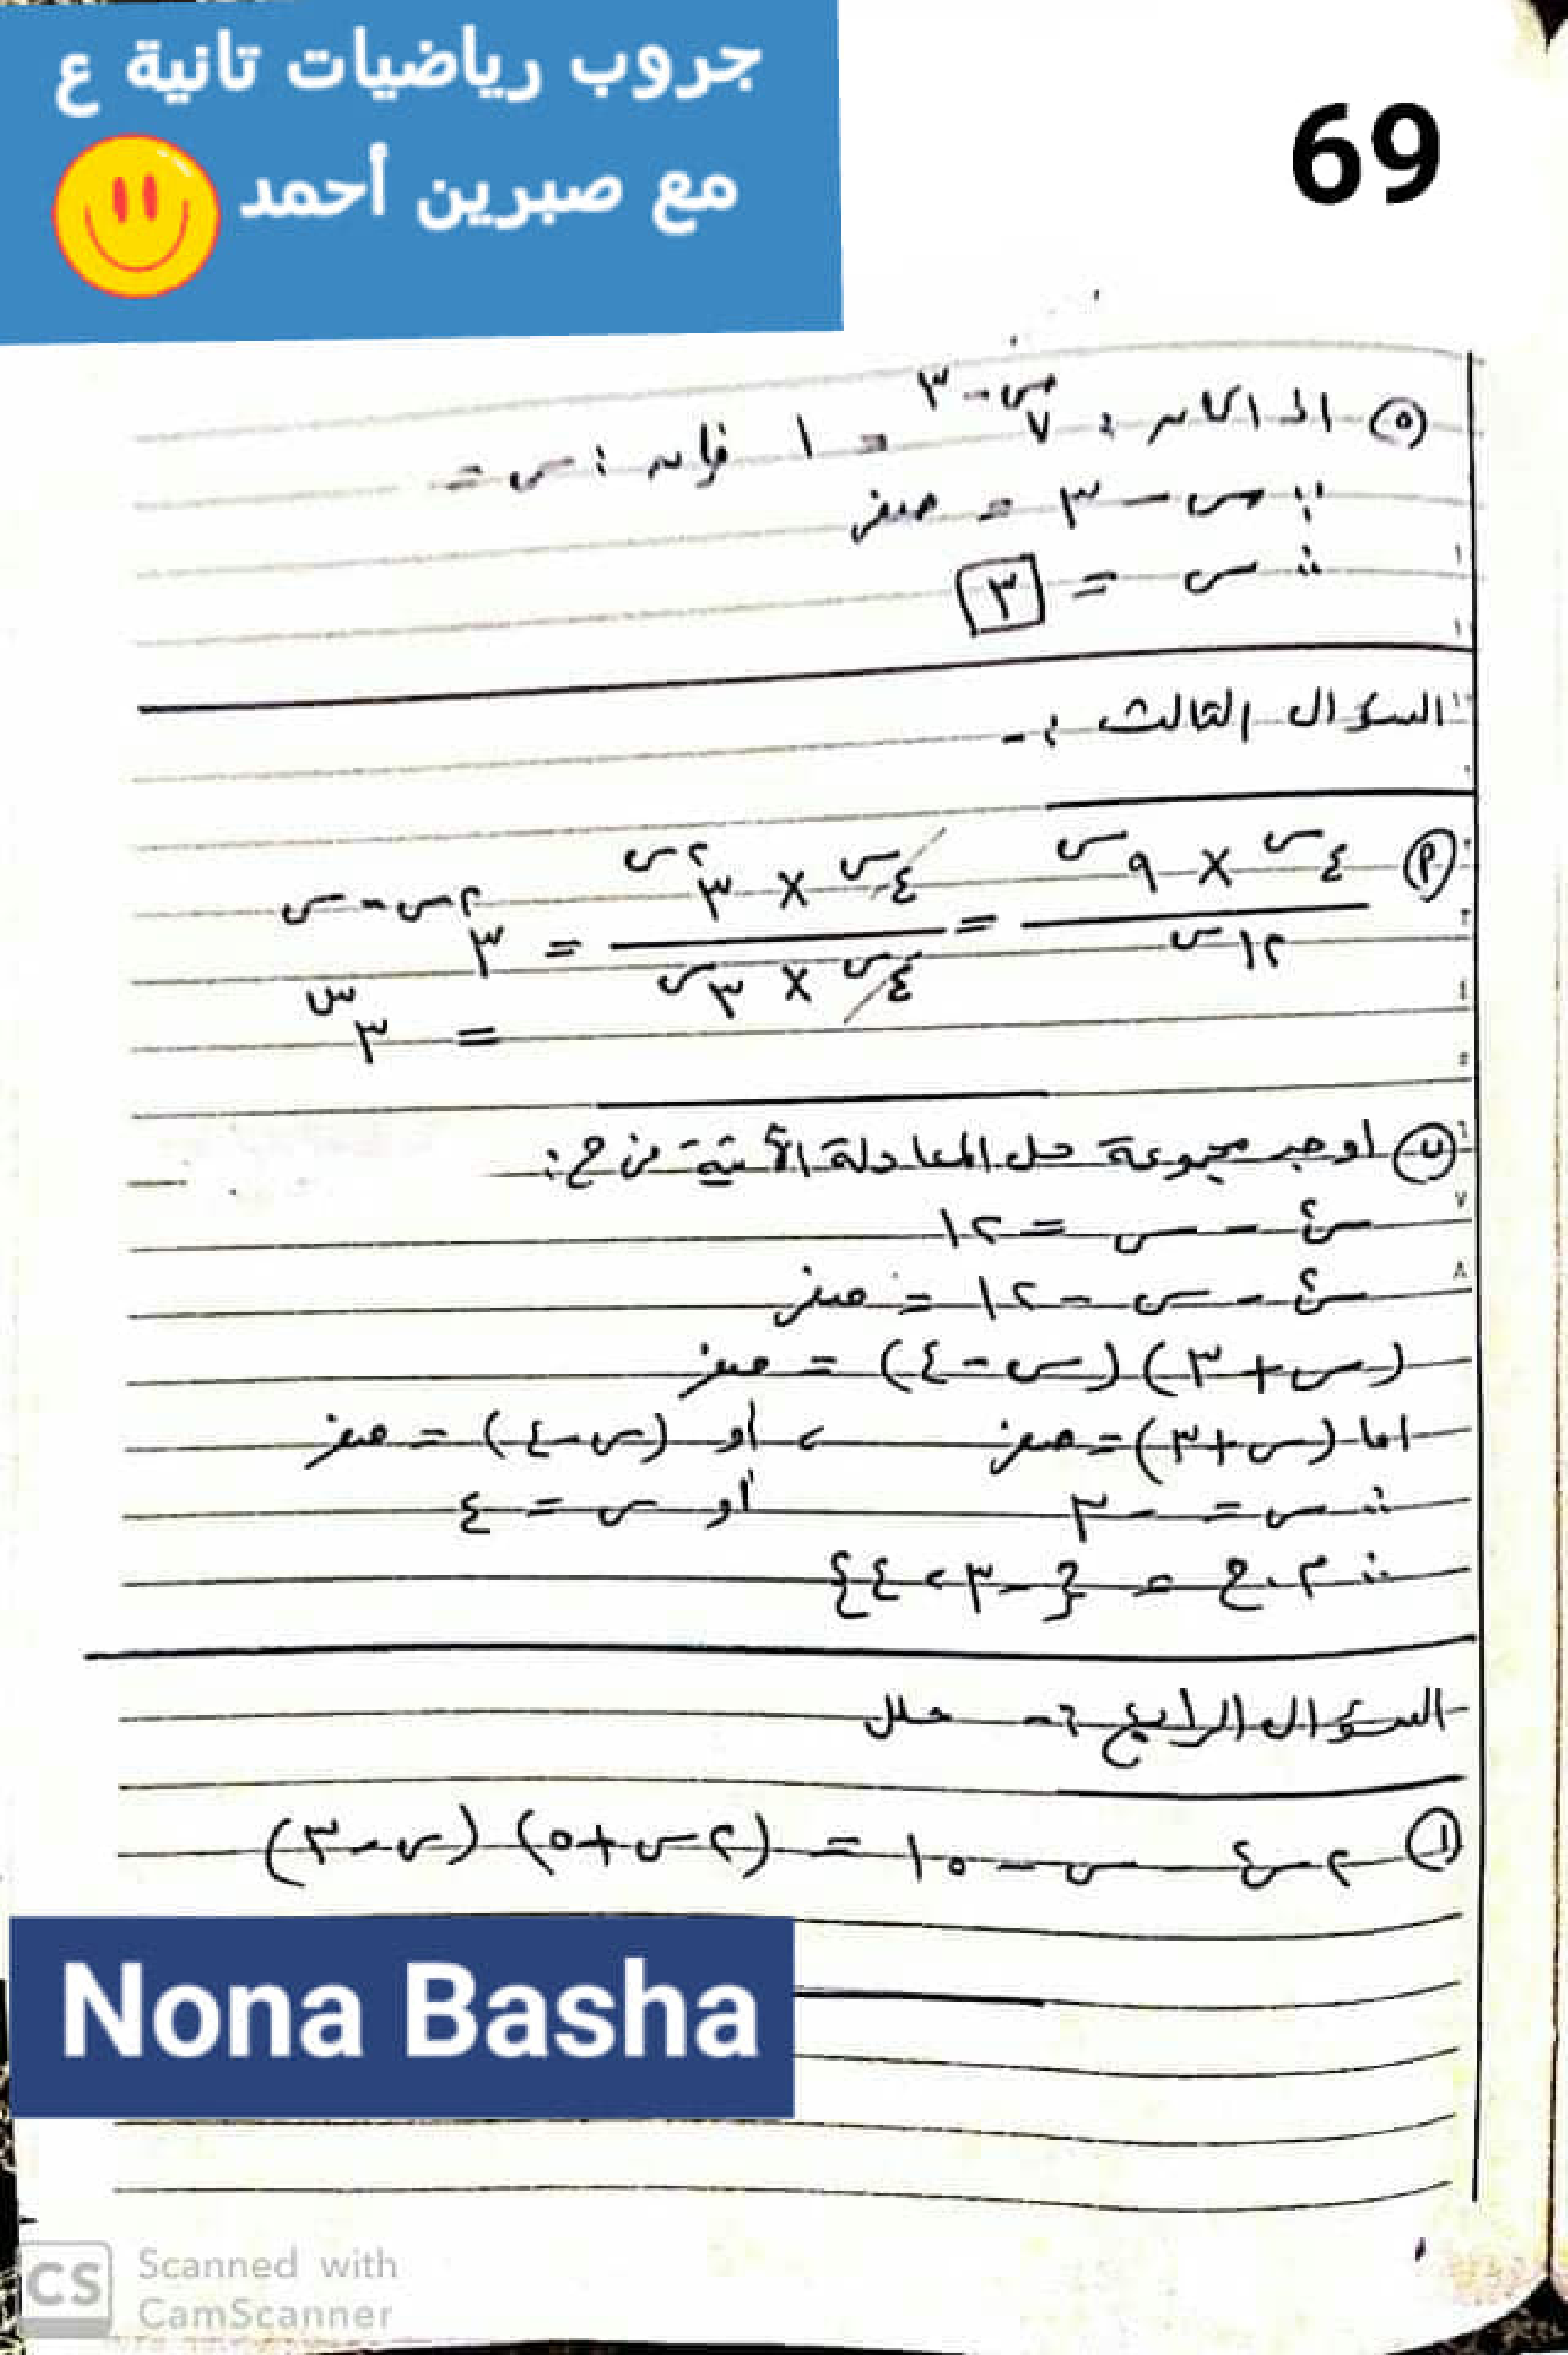 جروب رياضيات تانية ع
مع صبرين أحمد
69
٥ إذا كان : ٧^(س-٣) = ١ فإن : س =
∵ س - ٣ = صفر
∴ س = ٣
السؤال الثالث :-
أ (٤^س × ٩^س) / ١٢^س = (٤^س × ٣^٢س) / (٤^س × ٣^س) = ٣^(٢س-س)
= ٣^س
ب أوجد مجموعة حل المعادلة الآتية في ح :
س² - س = ١٢
س² - س - ١٢ = صفر
(س+٣) (س-٤) = صفر
اما (س+٣) = صفر ، أو (س-٤) = صفر
∴ س = -٣ أو س = ٤
∴ م.ح = {-٣ ، ٤}
السؤال الرابع :- حلل
١ ٢س² - س - ١٥ = (٢س+٥) (س-٣)
Nona Basha
CS Scanned with
CamScanner